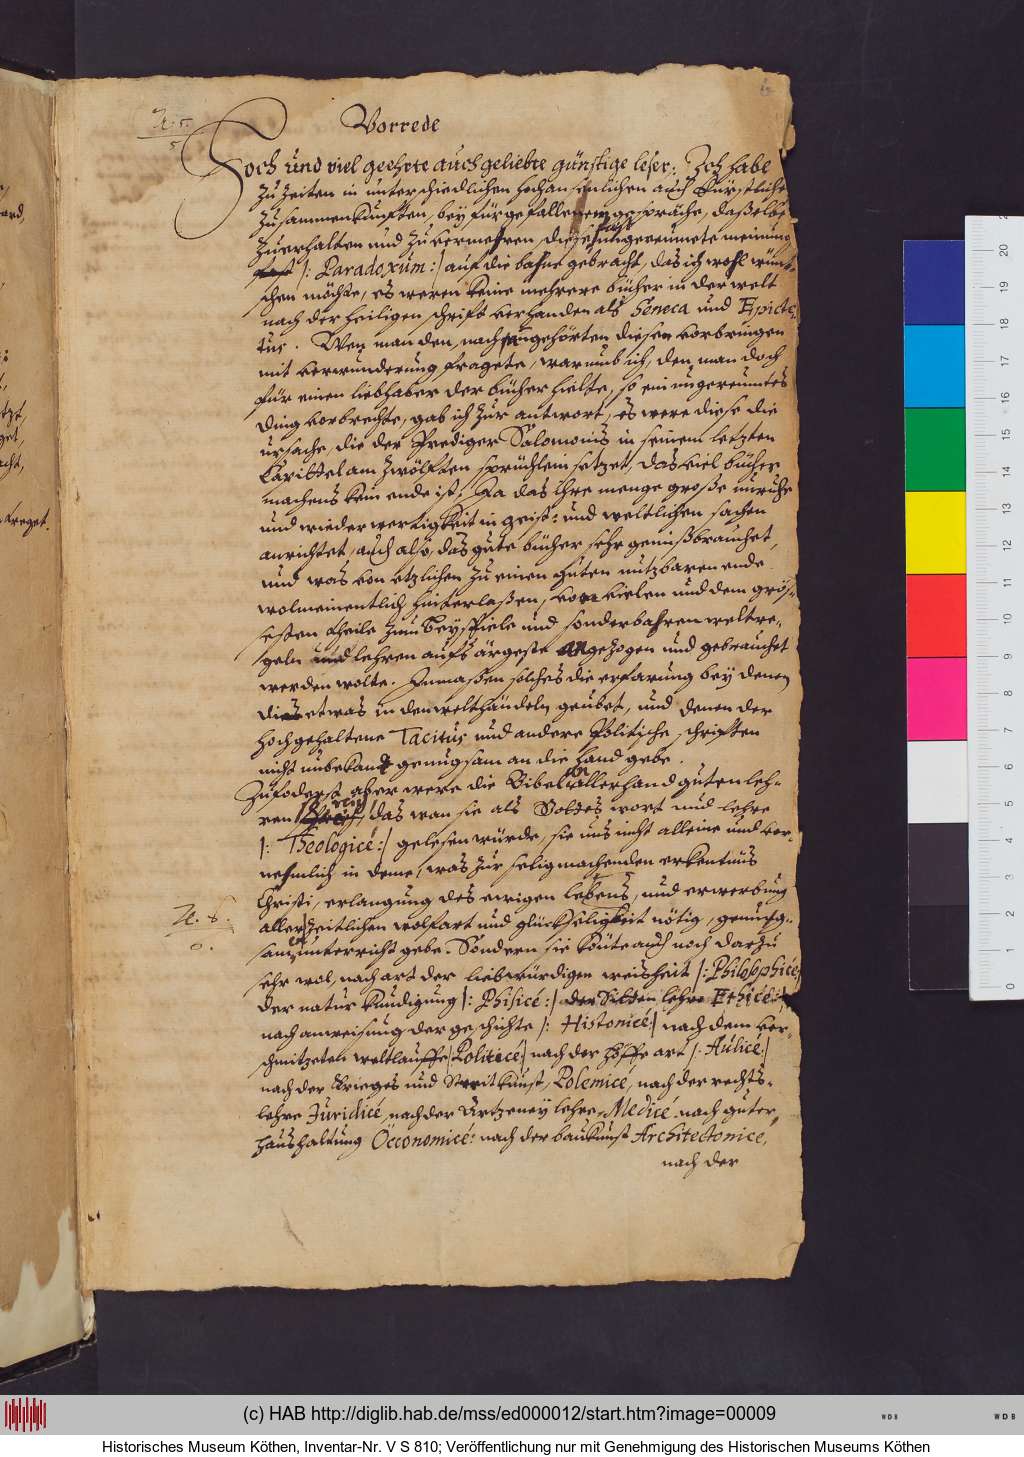 Vorrede
Hoch und viel geehrte auch geliebte günstige leser: Ich habe
zu zeiten in unterschiedlichen hochansehnlichen auch Fürstlichen
zusammenkunften, bey fürgefallenem gespräche, daßelbe
zuerhalten und zuvermehren, diese ungereumete meinung
|: Paradoxum :| auf die bahne gebracht, das ich wohl wünt-
schen möchte, es weren keine mehrere bücher in der welt
nach der heiligen schrift verhanden als Seneca und Epicte-
tus. Wen man den, nach angehörten diesem vorbringen
mit verwunderung fragete, warumb ich, den man doch
für einen liebhaber der bücher hielte, so ein ungereumtes
ding vorbrechte, gab ich zur antwort, es were diese die
ursache, die der Prediger Salomonis in seinem letzten
Capittel am zwölften sprüchlein setzet, das viel bücher
machens kein ende ist; Ja das Ihre menge große unruhe
und wiederwertigkeit in geist- und weltlichen sachen
anrichtet, auch also, das gute bücher sehr gemißbrauchet,
und was von etzlichen zu einen guten nutzbaren ende
wolmeinentlich hinterlaßen, von vielen und dem grös-
sesten theile zum beyspiele und sonderbahren weltre-
geln und lehren aufs ärgeste angezogen und gebrauchet
werden wolte. Inmaßen solches die erfarung bey denen
die etwas in den welthändeln geubet, und denen der
hochgehaltene Tacitus und andere Politische schriften
nicht unbekandt genugsam an die hand gebe.
Zufoderst aber were die Bibel an allerhand guten leh-
ren reich, das wan sie als Gottes wort und lehre
|: Theologicé :| gelesen würde, sie uns nicht alleine und vor-
nehmlich in deme, was zur seligmachenden erkentnus
Christi, erlangung des ewigen lebens, und erwerbung
aller zeitlichen wolfart und glückseligkeit nötig, genug-
samen unterricht gebe. Sondern sie könte auch noch darzu
sehr wol, nach art der liebwürdigen weisheit |: Philosophicé
der natur kundigung |: Phisicé :| der Sitten lehre Ethicé :|
nach anweisung der geschichte |: Historicé :| nach dem ver-
schmitzeten weltlauffe |: Politicé :| nach der höffe art |: Aulicé :|
nach der Krieges und Streitkunst, Polemicé, nach der rechts-
lehre Juridicé, nach der Artzeney lehre, Medicé, nach guter
haushaltung Oeconomicé: nach der baukunst Architectonicé,
nach der
(c) HAB http://diglib.hab.de/mss/ed000012/start.htm?image=00009
Historisches Museum Köthen, Inventar-Nr. V S 810; Veröffentlichung nur mit Genehmigung des Historischen Museums Köthen